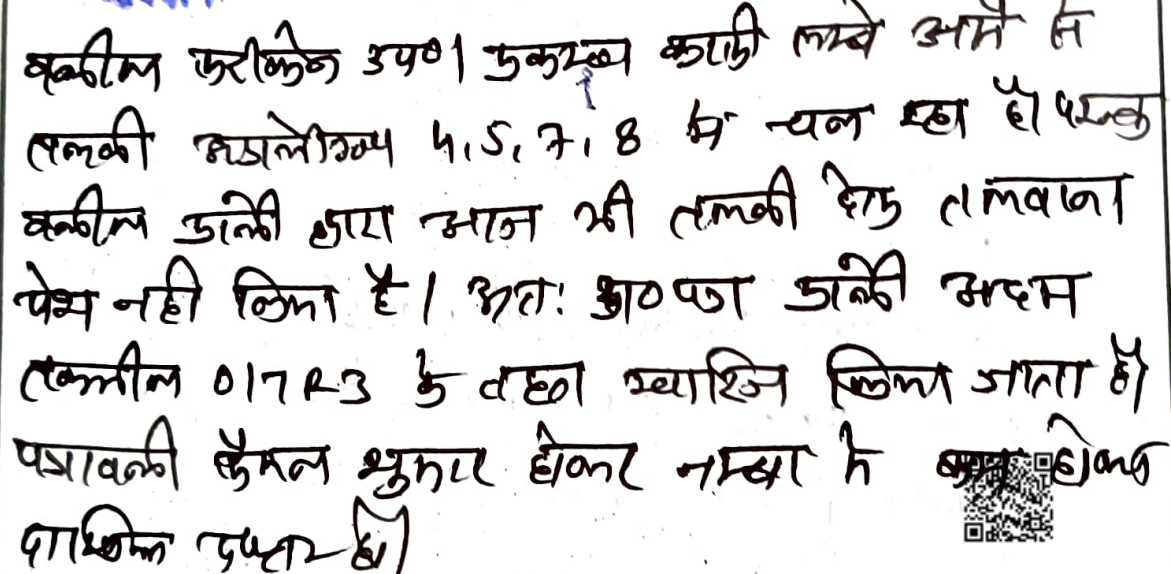 वकील फरीकेन उप०। प्रकरण काफी लम्बे अर्से से
तलबी अप्रार्थीगण 4,5,7,8 में चल रहा है। परन्तु
वकील प्रार्थी द्वारा आज भी तलबी हेतु तलवाना
पेश नही किया है। अतः प्रा० पत्र प्रार्थी अदम
तकमील O17 R-3 के तहत खारिज किया जाता है।
पत्रावली फैसल शुमार होकर नम्बर से कम होकर
दाखिल दफ्तर हो।